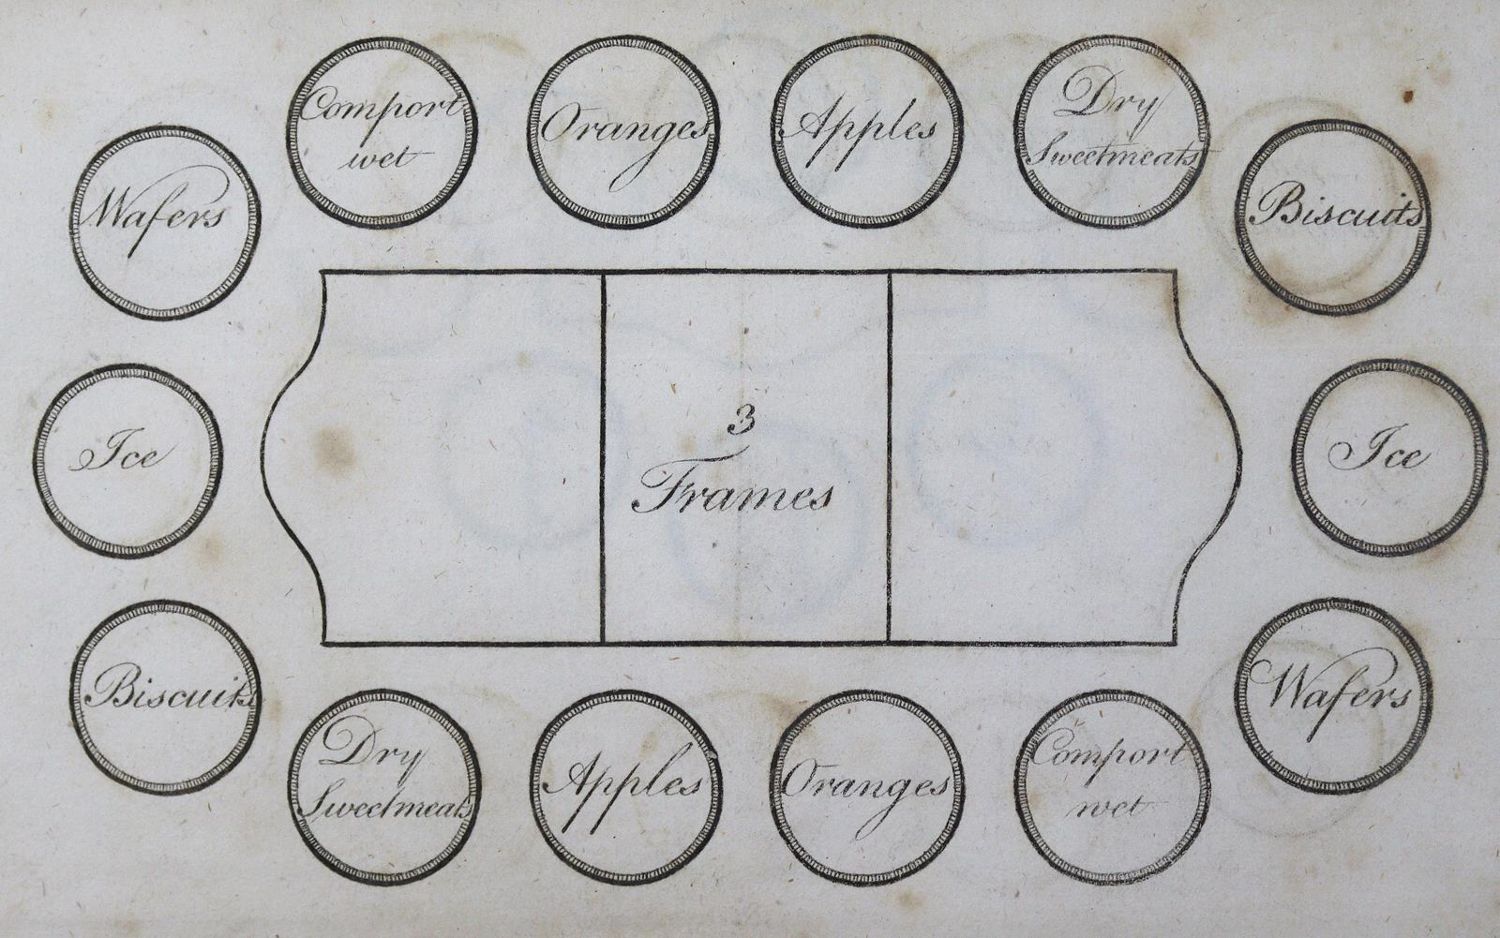 Comport
wet
Oranges
Apples
Dry
Sweetmeats
Wafers
Biscuits
Ice
3
Frames
Ice
Biscuits
Wafers
Dry
Sweetmeats
Apples
Oranges
Comport
wet